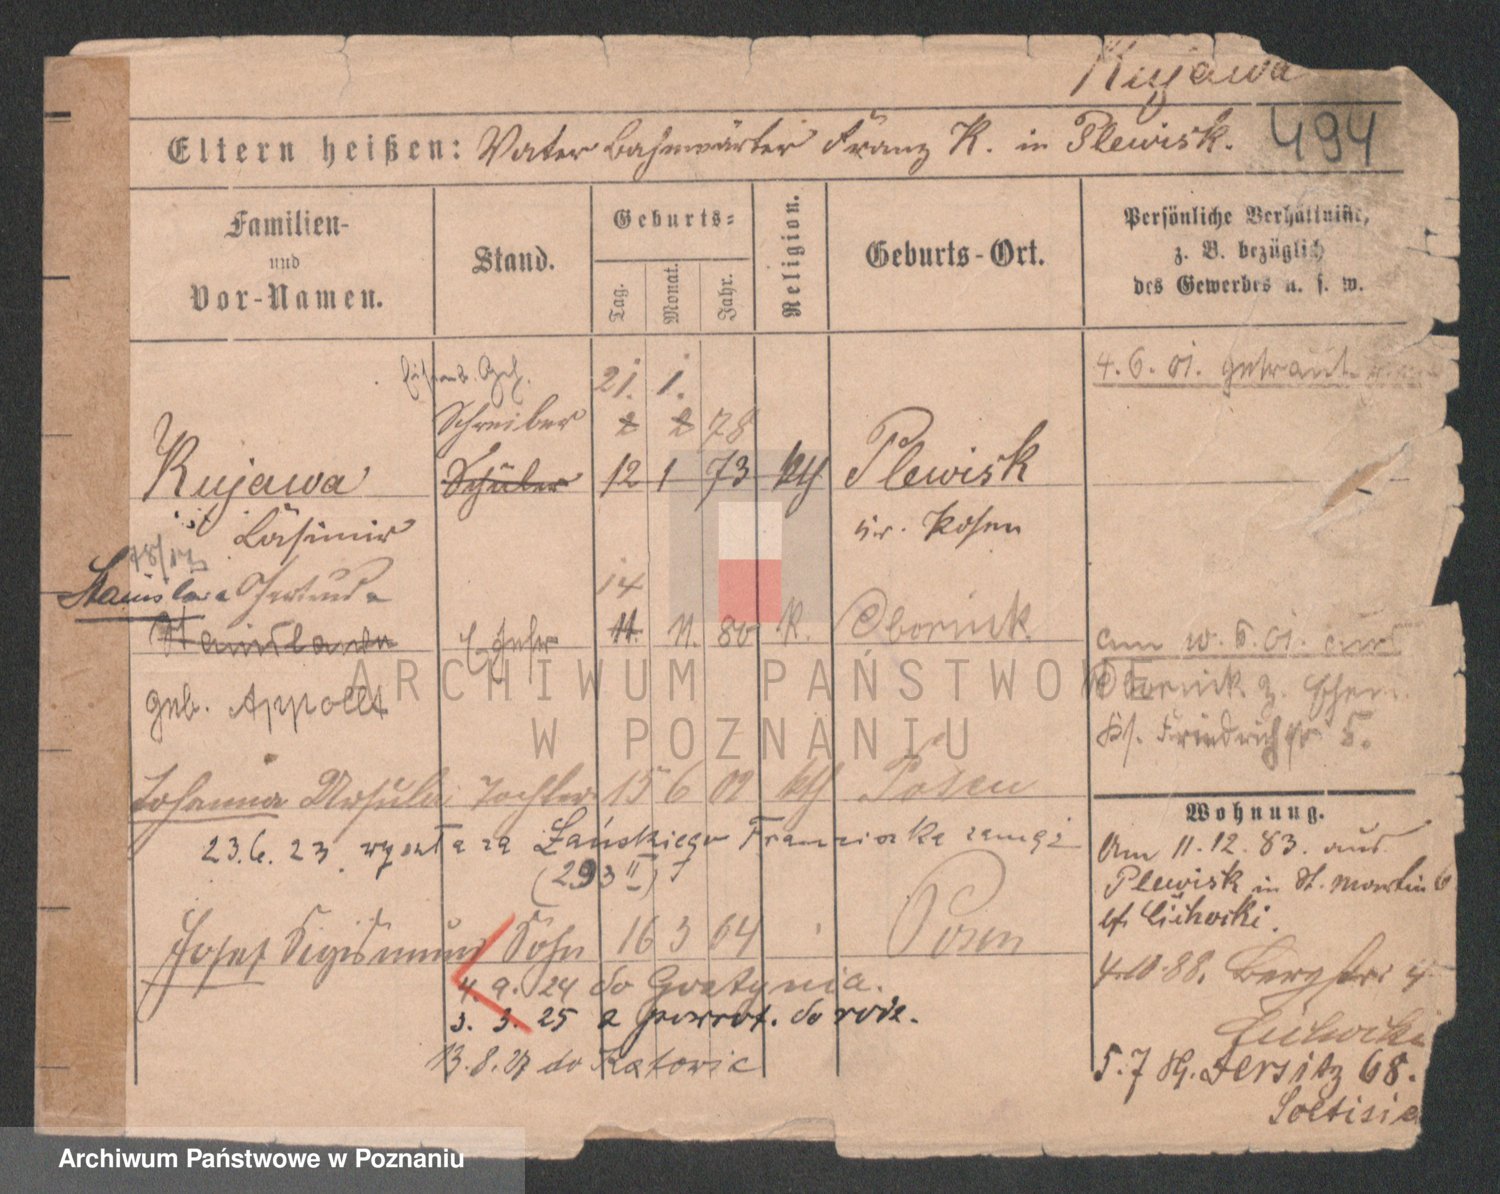 Kujawa
Eltern heißen: Vater Bahnwärter Franz K. in Plewisk. 494
Familien-
und
Vor-Namen.
Stand.
Geburts-
Tag.
Monat.
Jahr.
Religion.
Geburts-Ort.
Persönliche Verhältnisse,
z. B. bezüglich
des Gewerbes u. s. w.
21. 1. 4. 6. 01. getraut
Schreiber 2 2 78
Kujawa Schüler 12 1 73 kth Plewisk
Casimir Kr. Posen
Stanislawa Gertrud 14
Ehefr 11. 11. 80 K. Obornik am 10. 6. 01. aus
geb. Appollt Obornik z. Ehem.
Friedrichstr 5.
Johanna Ursula Tochter 15 6 02 kth Posen
Wohnung.
23. 6. 23 wyszła za Łańskiego Franciszka zamąż
(293 II)
Am 11. 12. 83. aus
Plewisk in St. Martin 6
bf. Cichocki.
Josef Sigismund Sohn 16 3 04 Posen
4. 9. 24 do Gostynia.
3. 3. 25 z powrot. do rodz.
13. 8. 27 do Katowic
4. 10. 88. Bergstr. 4
Cichocki
5. 7 89. Jersitz 68.
Archiwum Państwowe w Poznaniu
ARCHIWUM PAŃSTWOWE
W POZNANIU